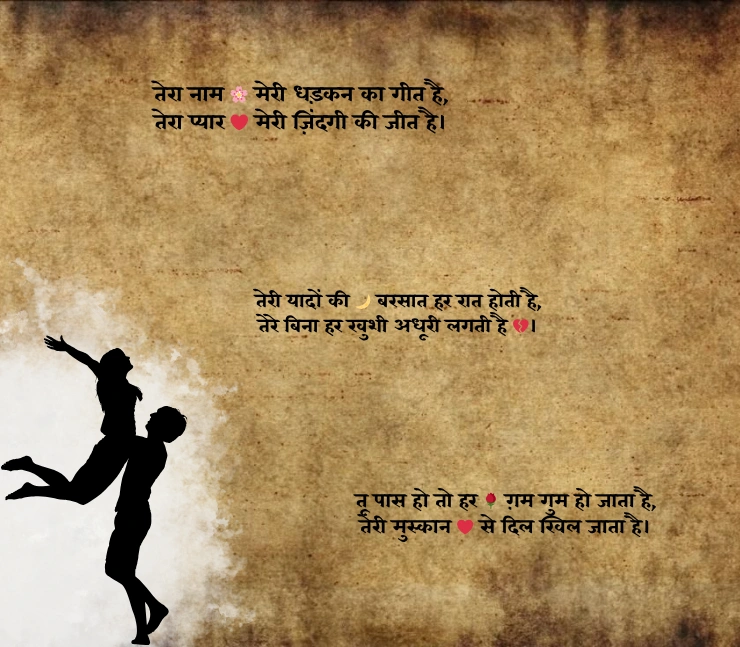 तेरा नाम 🌸 मेरी धड़कन का गीत है,
तेरा प्यार ❤️ मेरी ज़िंदगी की जीत है।
तेरी यादों की 🌙 बरसात हर रात होती है,
तेरे बिना हर खुशी अधूरी लगती है 💔।
तू पास हो तो हर 🌹 ग़म गुम हो जाता है,
तेरी मुस्कान ❤️ से दिल खिल जाता है।